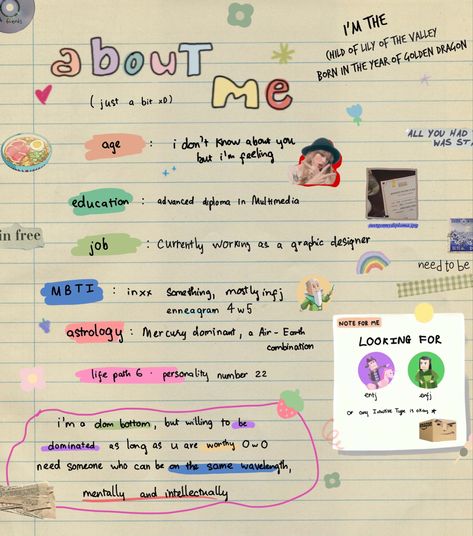 friends
about me
( just a bit xD)
I'M THE
CHILD OF LILY OF THE VALLEY
BORN IN THE YEAR OF GOLDEN DRAGON
age : i don't know about you
but i'm feeling
ALL YOU HAD
WAS STA
education : advanced diploma in Multimedia
in free
job : Currently working as a graphic designer
need to be
MBTI : inxx something, mostly infj
enneagram 4w5
astrology : Mercury dominant, a Air - Earth
combination
life path 6 · personality number 22
NOTE FOR ME
LOOKING FOR
entj
enfj
Or any Intuitive Type is okay
i'm a dom bottom, but willing to be
dominated as long as u are worthy OwO
need someone who can be on the same wavelength,
mentally and intellectually